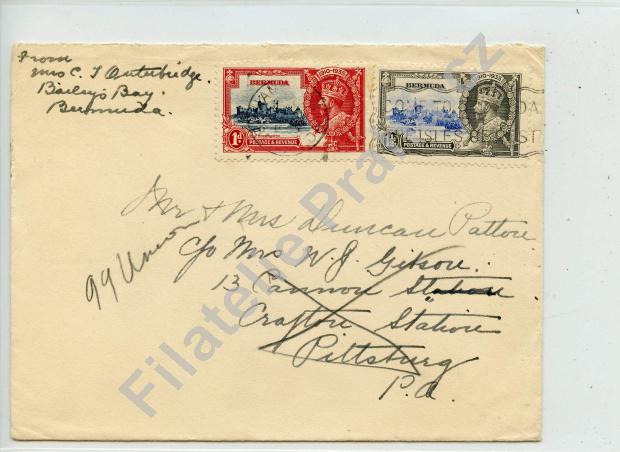 From
Mrs C. T Outerbridge.
Bailey's Bay.
Bermuda.
1910-1935
BERMUDA
1d
POSTAGE & REVENUE
1910-1935
BERMUDA
POSTAGE & REVENUE
COME TO
ISLES OF
Mr & Mrs Duncan Patton
c/o Mrs W. J. Gibson.
99 Union
13 Cannon Station
Crafton Station
Pittsburg
P.a.
Filatelie Pra cz